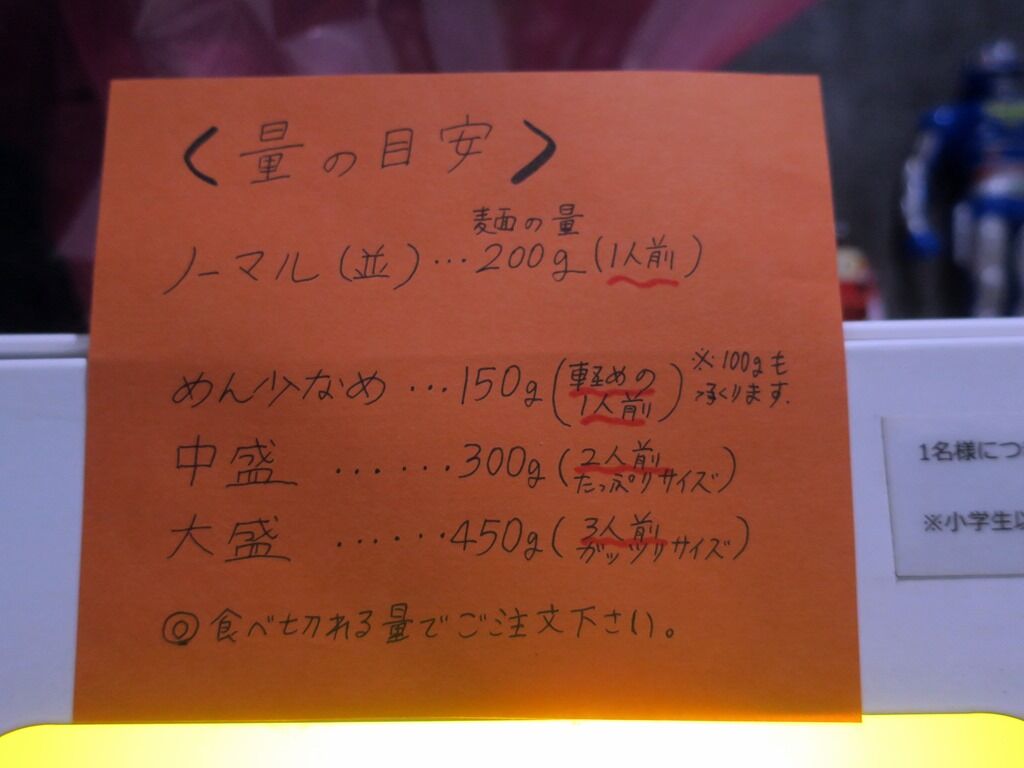 〈量の目安〉
麺の量
ノーマル(並)…200g(1人前)
めん少なめ…150g(軽めの1人前)
※100gも承ります.
中盛……300g(2人前たっぷりサイズ)
大盛……450g(3人前ガッツリサイズ)
◎食べ切れる量でご注文下さい。
1名様につ
※小学生以